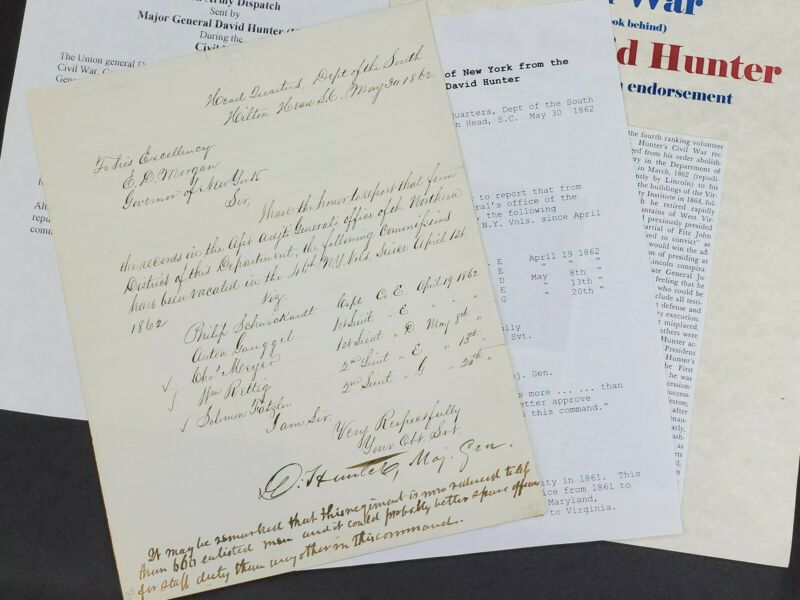 Army Dispatch
Sent by
Major General David Hunter
During the
Civil
The Union general D
Civil War, C
Gene
Alt
repu
comm
War
ook behind)
d Hunter
endorsement
Head Quarters, Dept of the South
Hilton Head S.C. May 30 1862
To his Excellency
E. D. Morgan
Governor of New York
Sir,
I have the honor to report that from
the records in the Asst Adjt General's office of the Northern
District of this Department, the following Commissions
have been vacated in the 46th N.Y. Vols, Since April 1st
1862 Viz:
Philip Schwickardt Capt Co E. April 19 1862
Anton Gauggel 1st Lieut " E " " "
Chas Meyer 1st Lieut " D May 8th "
Wm Rettig 2nd Lieut " E " 13th "
Solomon Fatzler 2nd Lieut " G " 20th "
I am Sir,
Very Respectfully
Your Obt. Svt.
D. Hunter, Maj. Gen.
It may be remarked that this regiment is now reduced to less
than 600 enlisted men and it could probably better spare officers
for staff duty than any other in this command.
of New York from the
David Hunter
quarters, Dept of the South
n Head, S.C. May 30 1862
to report that from
ral's office of the
, the following
N.Y. Vols. since April
E April 19 1862
E " " "
D May 8th "
E " 13th "
G " 20th "
lly
Svt.
j. Gen.
s more ... ... than
etter approve
n this command."
ity in 1861. This
ice from 1861 to
Maryland,
to Virginia.
the fourth ranking volunteer
Hunter's Civil War rec-
ged from his order abolish-
y in the Department of
in March, 1862 (repudi-
ntly by Lincoln) to his
the buildings of the Vir-
y Institute in 1864, fol-
h he retired rapidly
ntains of West Vir-
l previously presided
martial of Fitz John
d to convict" as
would win the ad-
on of presiding at
Lincoln conspira-
ate General Jo-
feeling that he
who could be
clude all testi-
defense and
y execution.
misplaced.
others were
Hunter ac-
President
the Hunter
he was
cession-
succes-
feston;
after